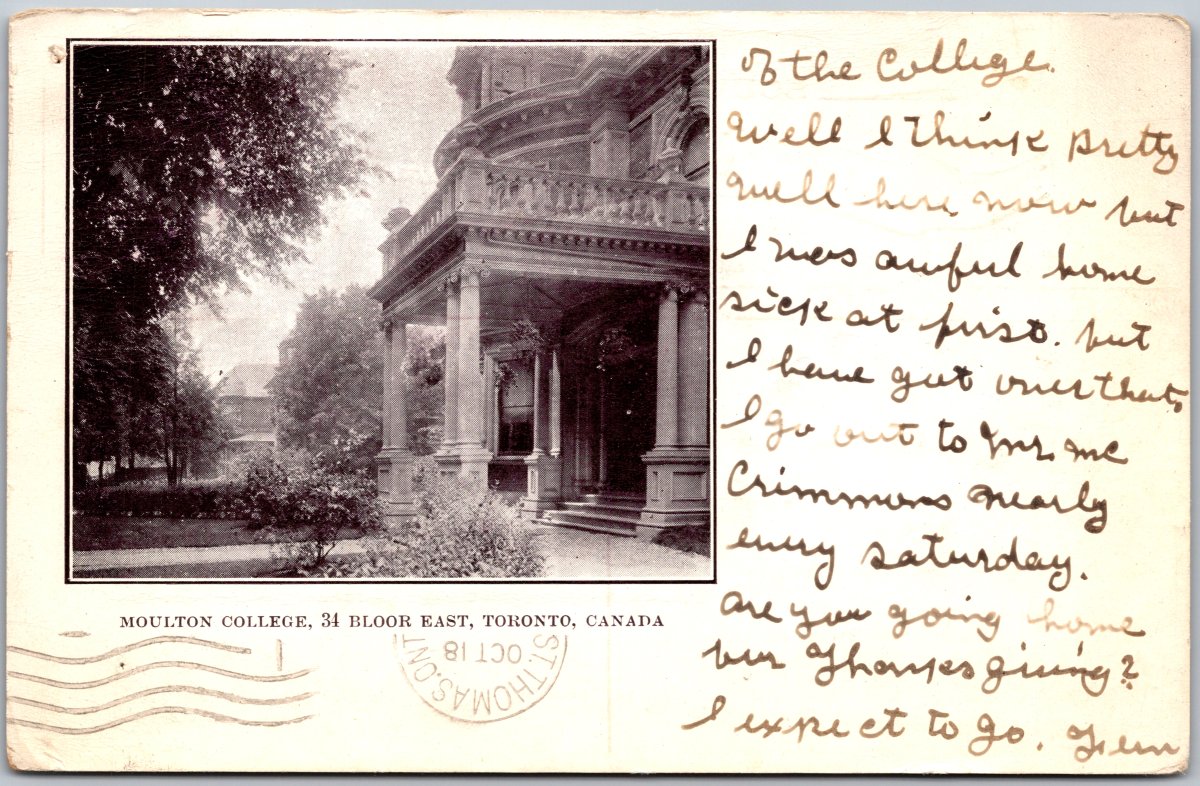 of the College.
Well I think pretty
well here now but
I was awful home
sick at first. but
I have got over that.
I go out to Mr. Mc
Crimmons nearly
every saturday.
are you going home
for Thanksgiving?
I expect to go. Fern
MOULTON COLLEGE, 34 BLOOR EAST, TORONTO, CANADA
ST. THOMAS. ONT
OCT 18